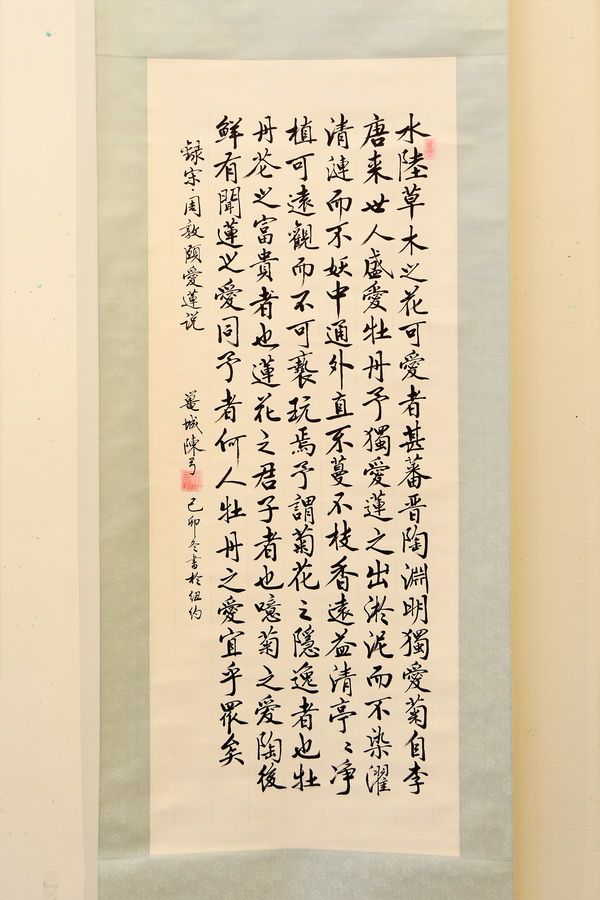 水陸草木之花可愛者甚蕃晋陶淵明獨愛菊自李
唐来世人盛愛牡丹予獨愛蓮之出淤泥而不染濯
清漣而不妖中通外直不蔓不枝香遠益清亭〻净
植可遠觀而不可褻玩焉予謂菊花之隱逸者也牡
丹花之富貴者也蓮花之君子者也噫菊之愛陶後
鮮有聞蓮之愛同予者何人牡丹之愛宜乎眾矣
録宋·周敦頤愛蓮説 城陳弓 己卯冬書於纽约